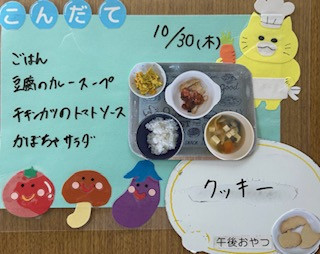 こんだて
10/30(木)
ごはん
豆腐のカレースープ
チキンカツのトマトソース
かぼちゃサラダ
クッキー
午後おやつ